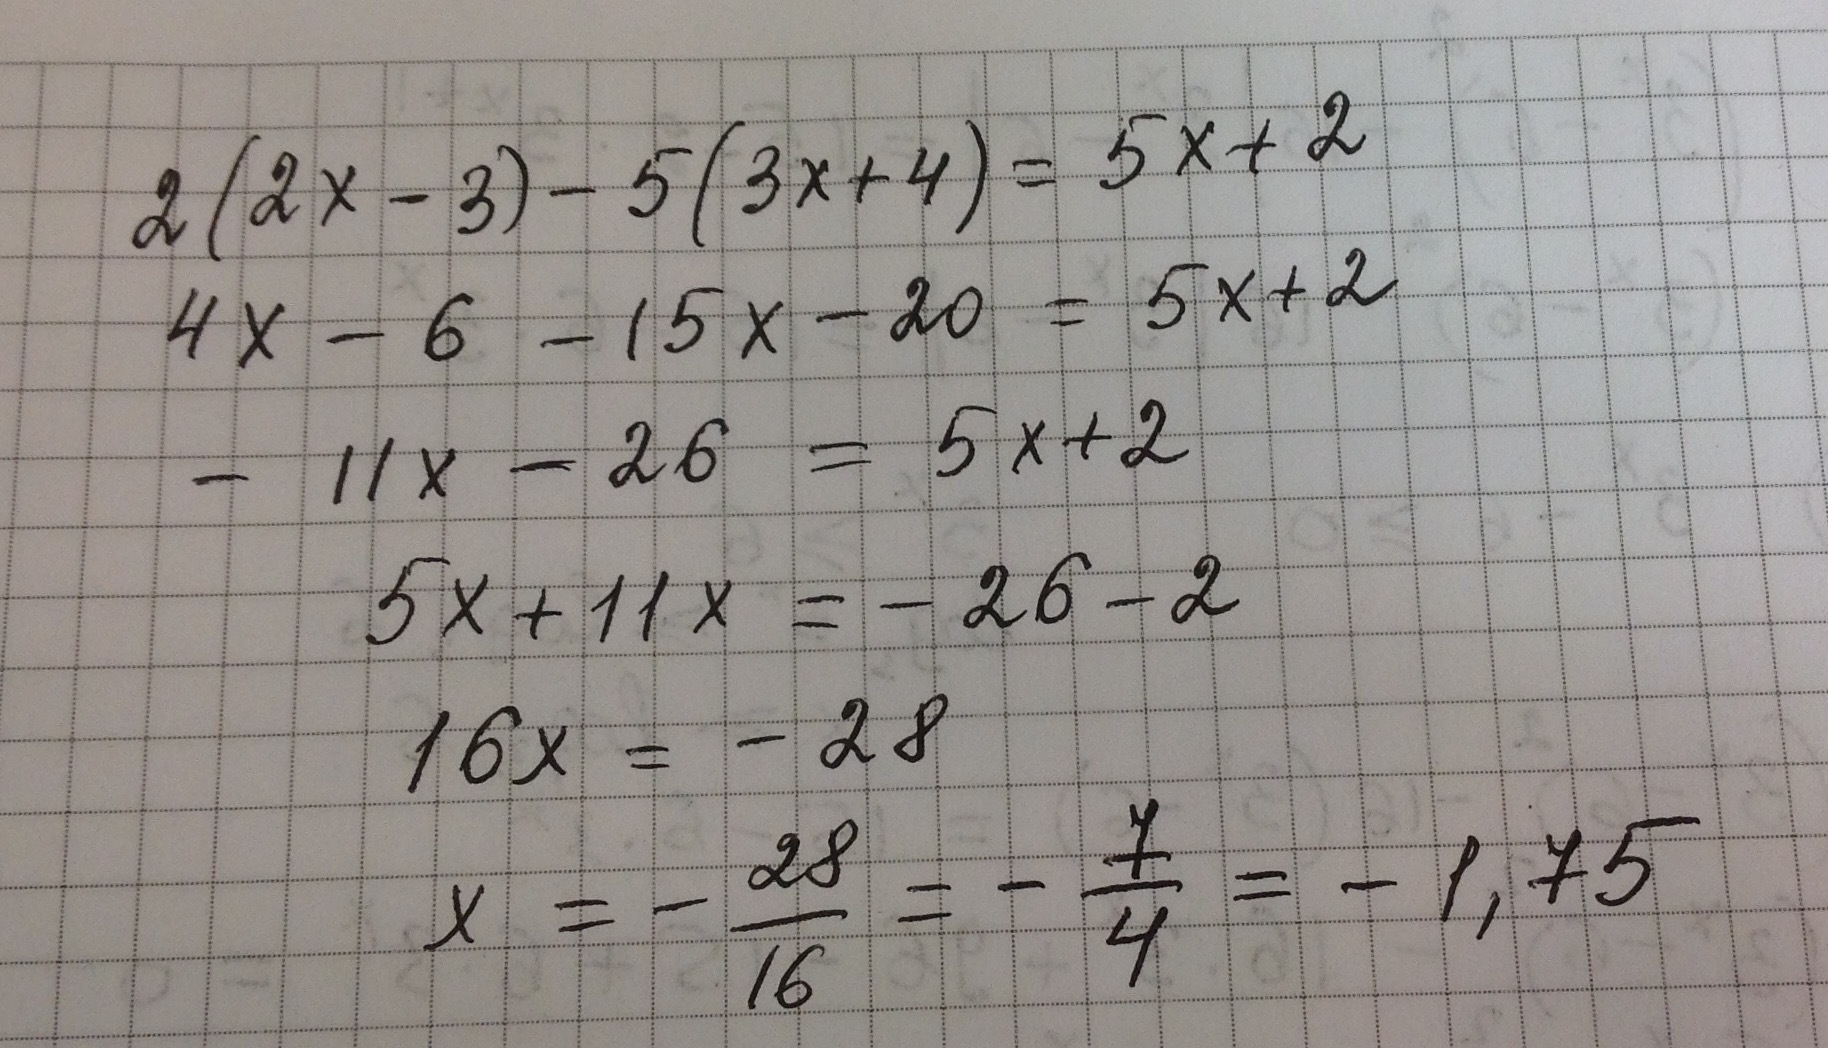 2(2x-3)-5(3x+4)=5x+2
4x-6-15x-20=5x+2
-11x-26=5x+2
5x+11x=-26-2
16x=-28
x=-28/16=-7/4=-1,75